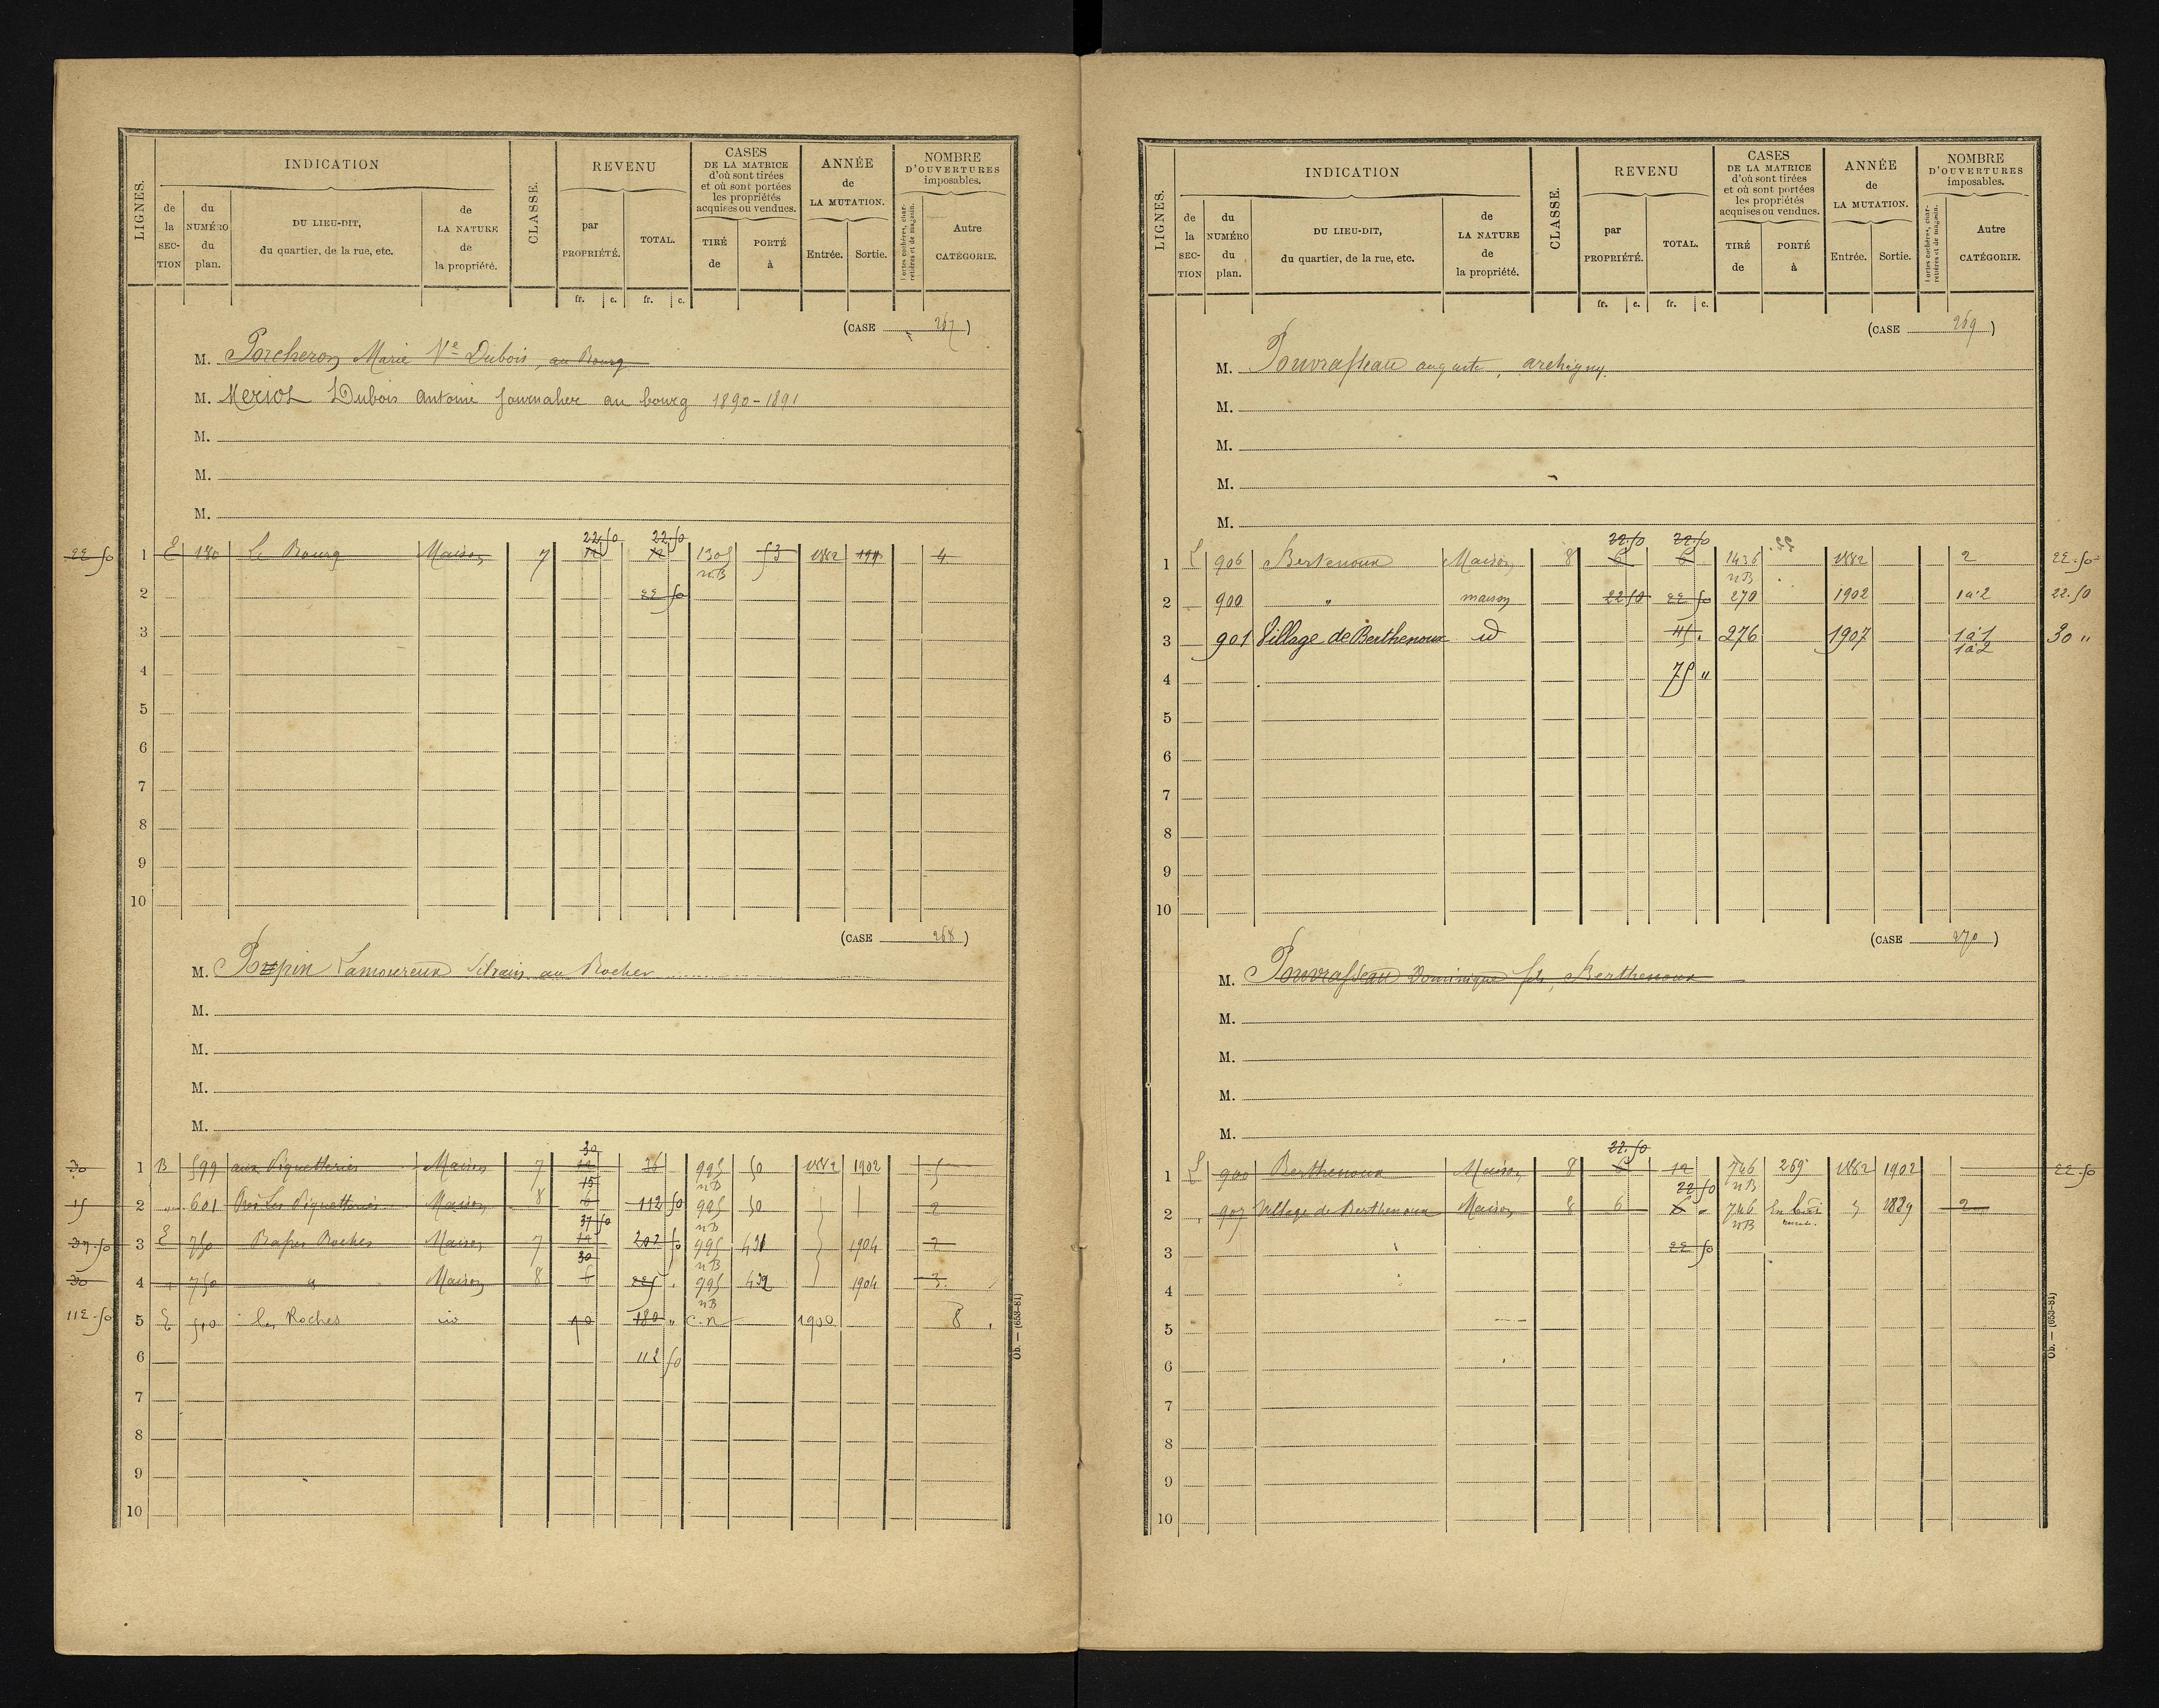 LIGNES. INDICATION CLASSE. REVENU CASES DE LA MATRICE d'où sont tirées et où sont portées les propriétés acquises ou vendues. ANNÉE de LA MUTATION. NOMBRE D'OUVERTURES imposables.
de la SECTION du NUMÉRO du plan. DU LIEU-DIT, du quartier, de la rue, etc. de LA NATURE de la propriété. par PROPRIÉTÉ. TOTAL. TIRÉ de PORTÉ à Entrée. Sortie. Portes cochères, charretières et de magasin. Autre CATÉGORIE.
fr. c. fr. c.
(CASE 267)
M. Porcheron Marie Ve Dubois, au Bourg
M. Meriot Dubois Antoine Journalier au bourg 1890-1891
M.
M.
M.
22 50 22 50
22 50 1 E 180 Le Bourg Maison 7 12 12 1305 53 1882 1911 4
nB
2 22 50
3
4
5
6
7
8
9
10
(CASE 268)
M. Pupin Lamoureux Silvain au Rocher
M.
M.
M.
M.
30
30 1 B 599 aux Piquetteries Maison 7 12 36 995 50 1882 1902 5
15 nB
15 2 " 601 Près Les Piquetteries Maison 8 6 112 50 995 50 2
37 50 nB
37.50 3 E 750 Basses Roches Maison 7 12 202 50 995 431 1904 2
30 nB
30 4 " 750 " Maison 8 6 225 . 995 432 1904 3
nB
112.50 5 E 510 les Roches id 90 180 " C.n 1900 8
6 112 50
7
8
9
10
Ob. — (653-81)
LIGNES. INDICATION CLASSE. REVENU CASES DE LA MATRICE d'où sont tirées et où sont portées les propriétés acquises ou vendues. ANNÉE de LA MUTATION. NOMBRE D'OUVERTURES imposables.
de la SECTION du NUMÉRO du plan. DU LIEU-DIT, du quartier, de la rue, etc. de LA NATURE de la propriété. par PROPRIÉTÉ. TOTAL. TIRÉ de PORTÉ à Entrée. Sortie. Portes cochères, charretières et de magasin. Autre CATÉGORIE.
fr. c. fr. c.
(CASE 269)
M. Pouvrasseau auguste, archigny.
M.
M.
M.
M.
22.50 22.50
1 L 906 Bertenoux Maison 8 6 6 1436 1882 2 22.50
nB
2 900 " maison 22 50 22 50 270 1902 1à2 22.50
3 901 Village de Berthenoux id 45 . 276 1907 1à1 30 "
1à2
4 75 "
5
6
7
8
9
10
(CASE 270)
M. Pouvrasseau Dominique fils, Berthenoux
M.
M.
M.
M.
22.50
1 L 900 Berthenoux Maison 8 6 12 746 269 1882 1902 22 50
22 50 nB
2 907 Village de Berthenoux Maison 8 6 6 " 746 1889 2
nB
3 22 50
4
5
6
7
8
9
10
Ob. — (653-81)